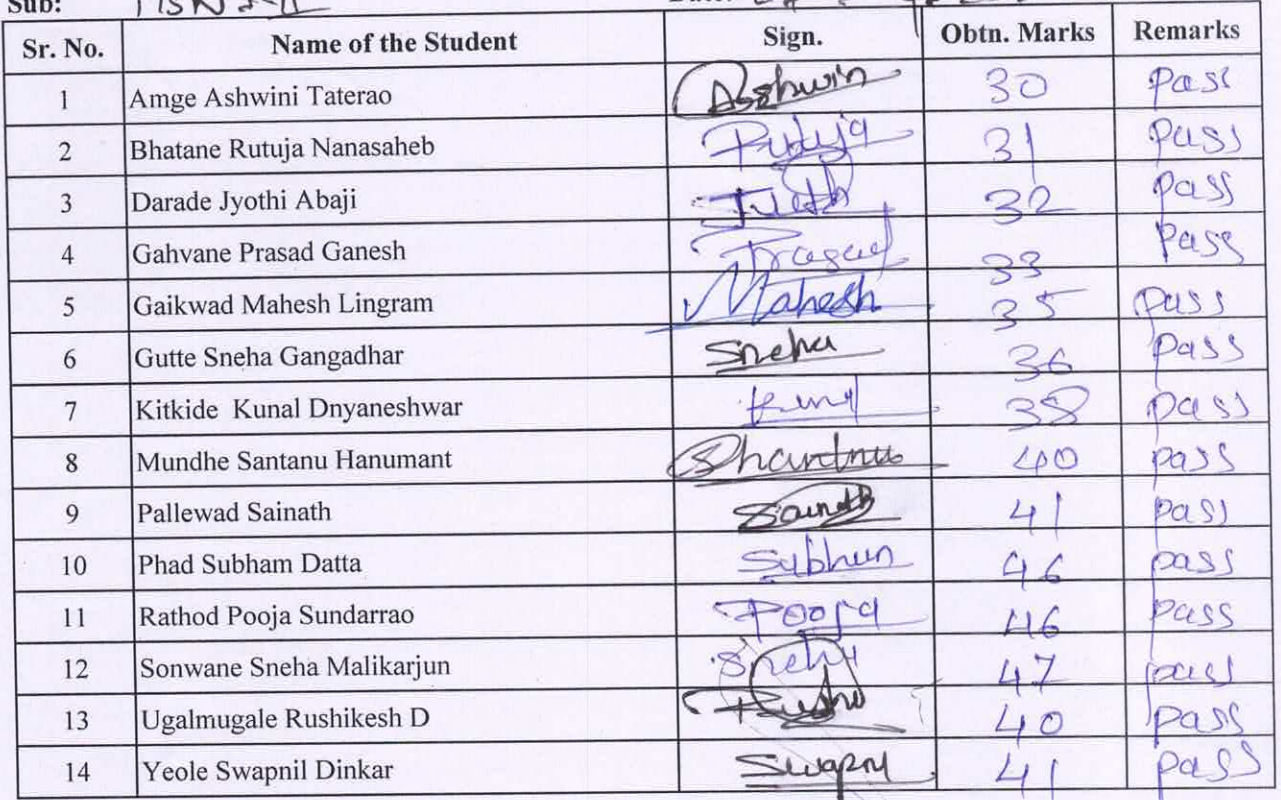 Sub:
Sr. No. Name of the Student Sign. Obtn. Marks Remarks
1 Amge Ashwini Taterao Ashwin 30 pass
2 Bhatane Rutuja Nanasaheb Rutuja 31 pass
3 Darade Jyothi Abaji 32 pass
4 Gahvane Prasad Ganesh Prasad 33 pass
5 Gaikwad Mahesh Lingram Mahesh 35 pass
6 Gutte Sneha Gangadhar Sneha 36 pass
7 Kitkide Kunal Dnyaneshwar 38 pass
8 Mundhe Santanu Hanumant 40 pass
9 Pallewad Sainath Sainath 41 pass
10 Phad Subham Datta 46 pass
11 Rathod Pooja Sundarrao Pooja 46 pass
12 Sonwane Sneha Malikarjun 47 pass
13 Ugalmugale Rushikesh D 40 pass
14 Yeole Swapnil Dinkar 41 pass